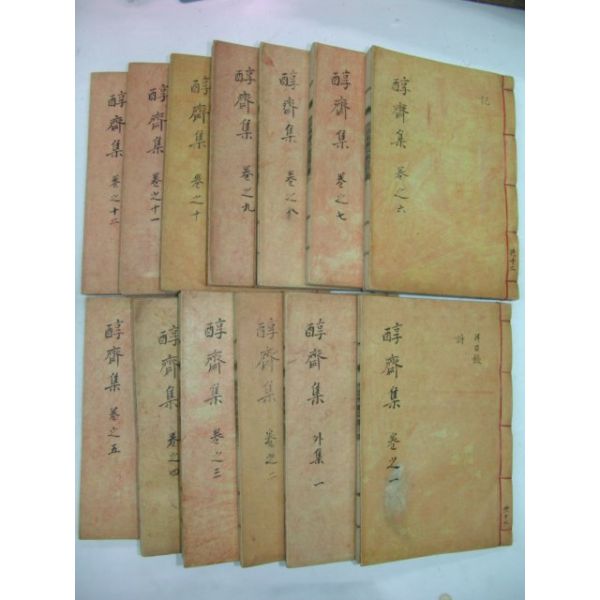 醇齋集 卷之六
記
共十二
醇齋集 卷之七
醇齋集 卷之八
醇齋集 卷之九
醇齋集 卷之十
醇齋集 卷之十一
醇齋集 卷之十二
醇齋集 卷之一
詩
醇齋集 外集 一
醇齋集 卷之二
醇齋集 卷之三
醇齋集 卷之四
醇齋集 卷之五